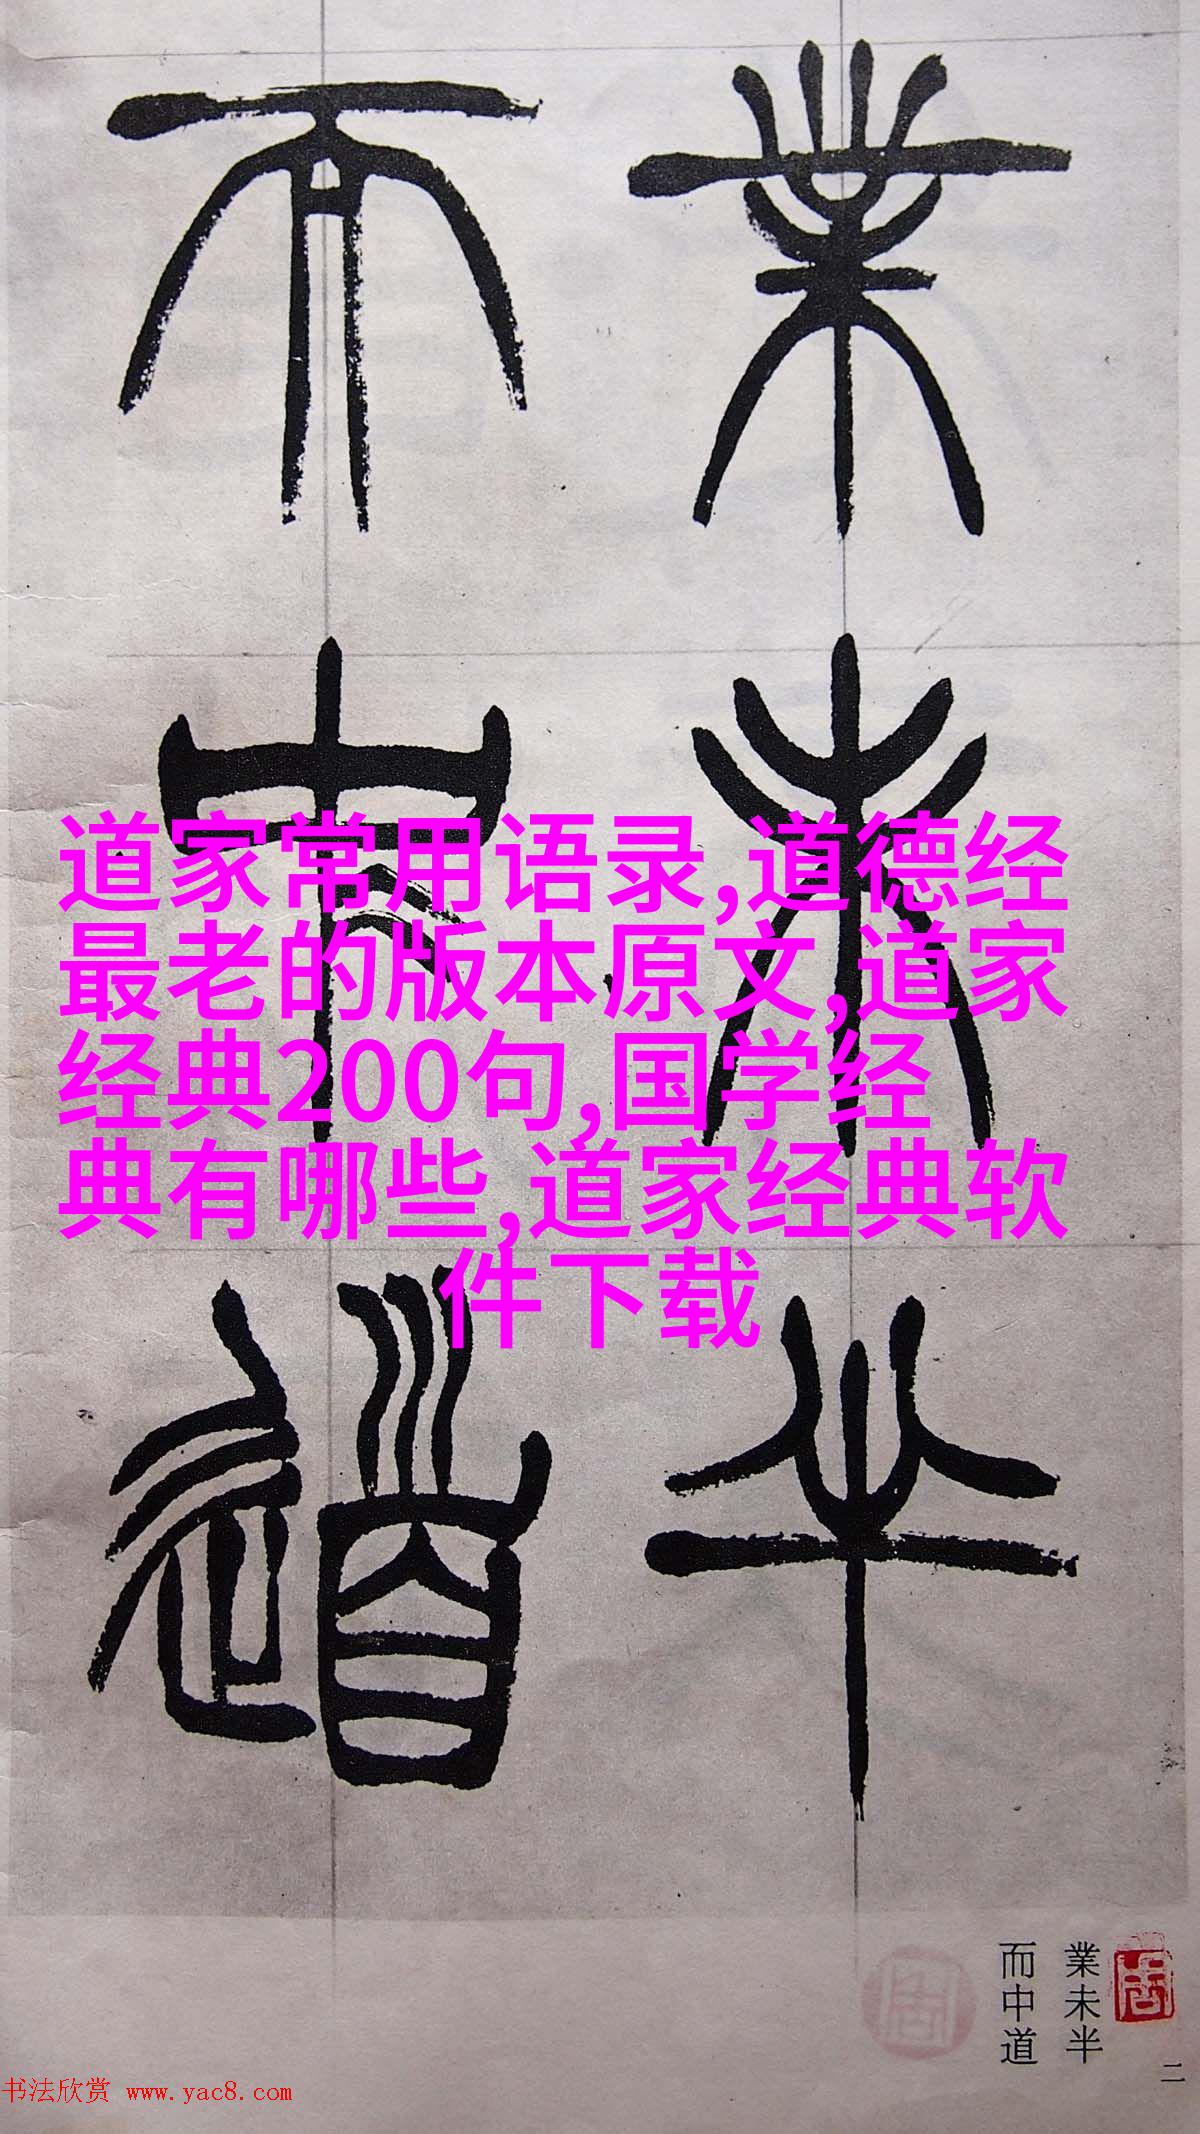 業未半
而中道
道家常用语录,道德经
最老的版本原文,道家
经典200句,国学经
典有哪些,道家经典软
件下载
業未半
而中道
二
书法欣赏 www.yac8.com